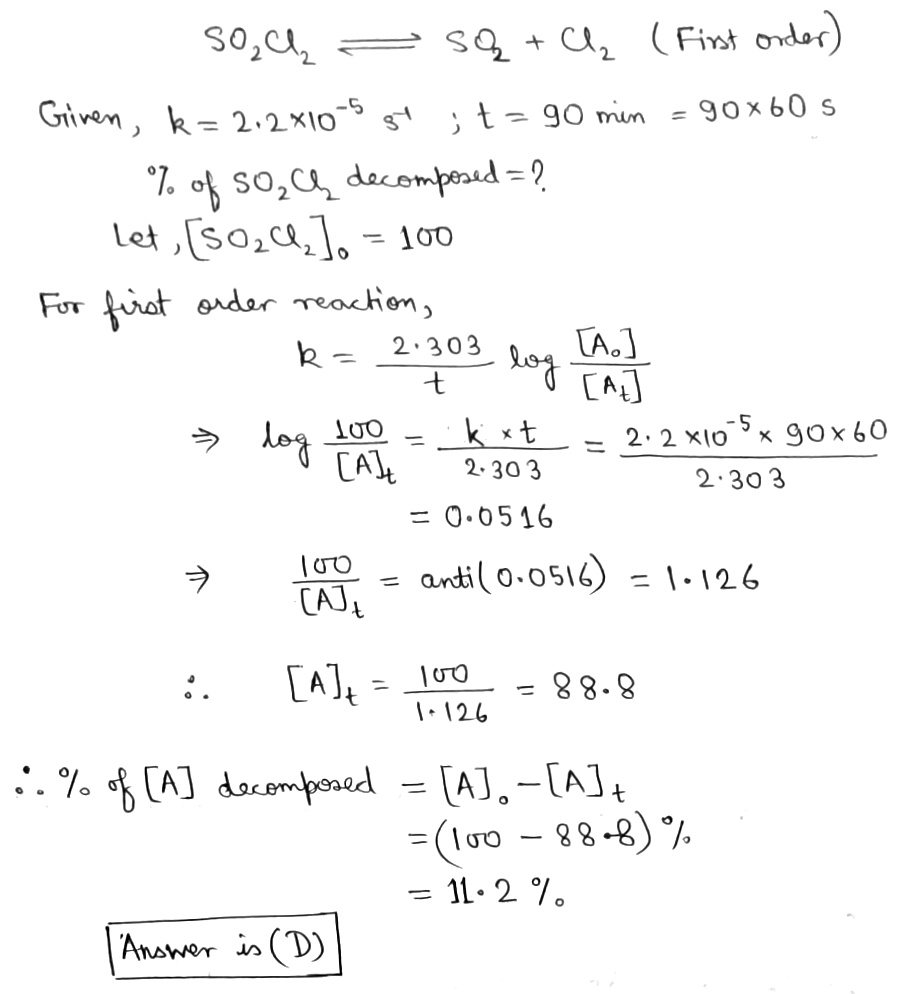 SO₂Cl₂ ⇌ SO₂ + Cl₂ (First order)
Given, k = 2.2×10⁻⁵ s⁻¹ ; t = 90 min = 90×60 s
% of SO₂Cl₂ decomposed = ?
Let, [SO₂Cl₂]₀ = 100
For first order reaction,
k = 2.303/t log [A₀]/[Aₜ]
⇒ log 100/[A]ₜ = k×t/2.303 = 2.2×10⁻⁵×90×60/2.303
= 0.0516
⇒ 100/[A]ₜ = anti(0.0516) = 1.126
∴ [A]ₜ = 100/1.126 = 88.8
∴ % of [A] decomposed = [A]₀ − [A]ₜ
= (100 − 88.8) %
= 11.2 %
Answer is (D)